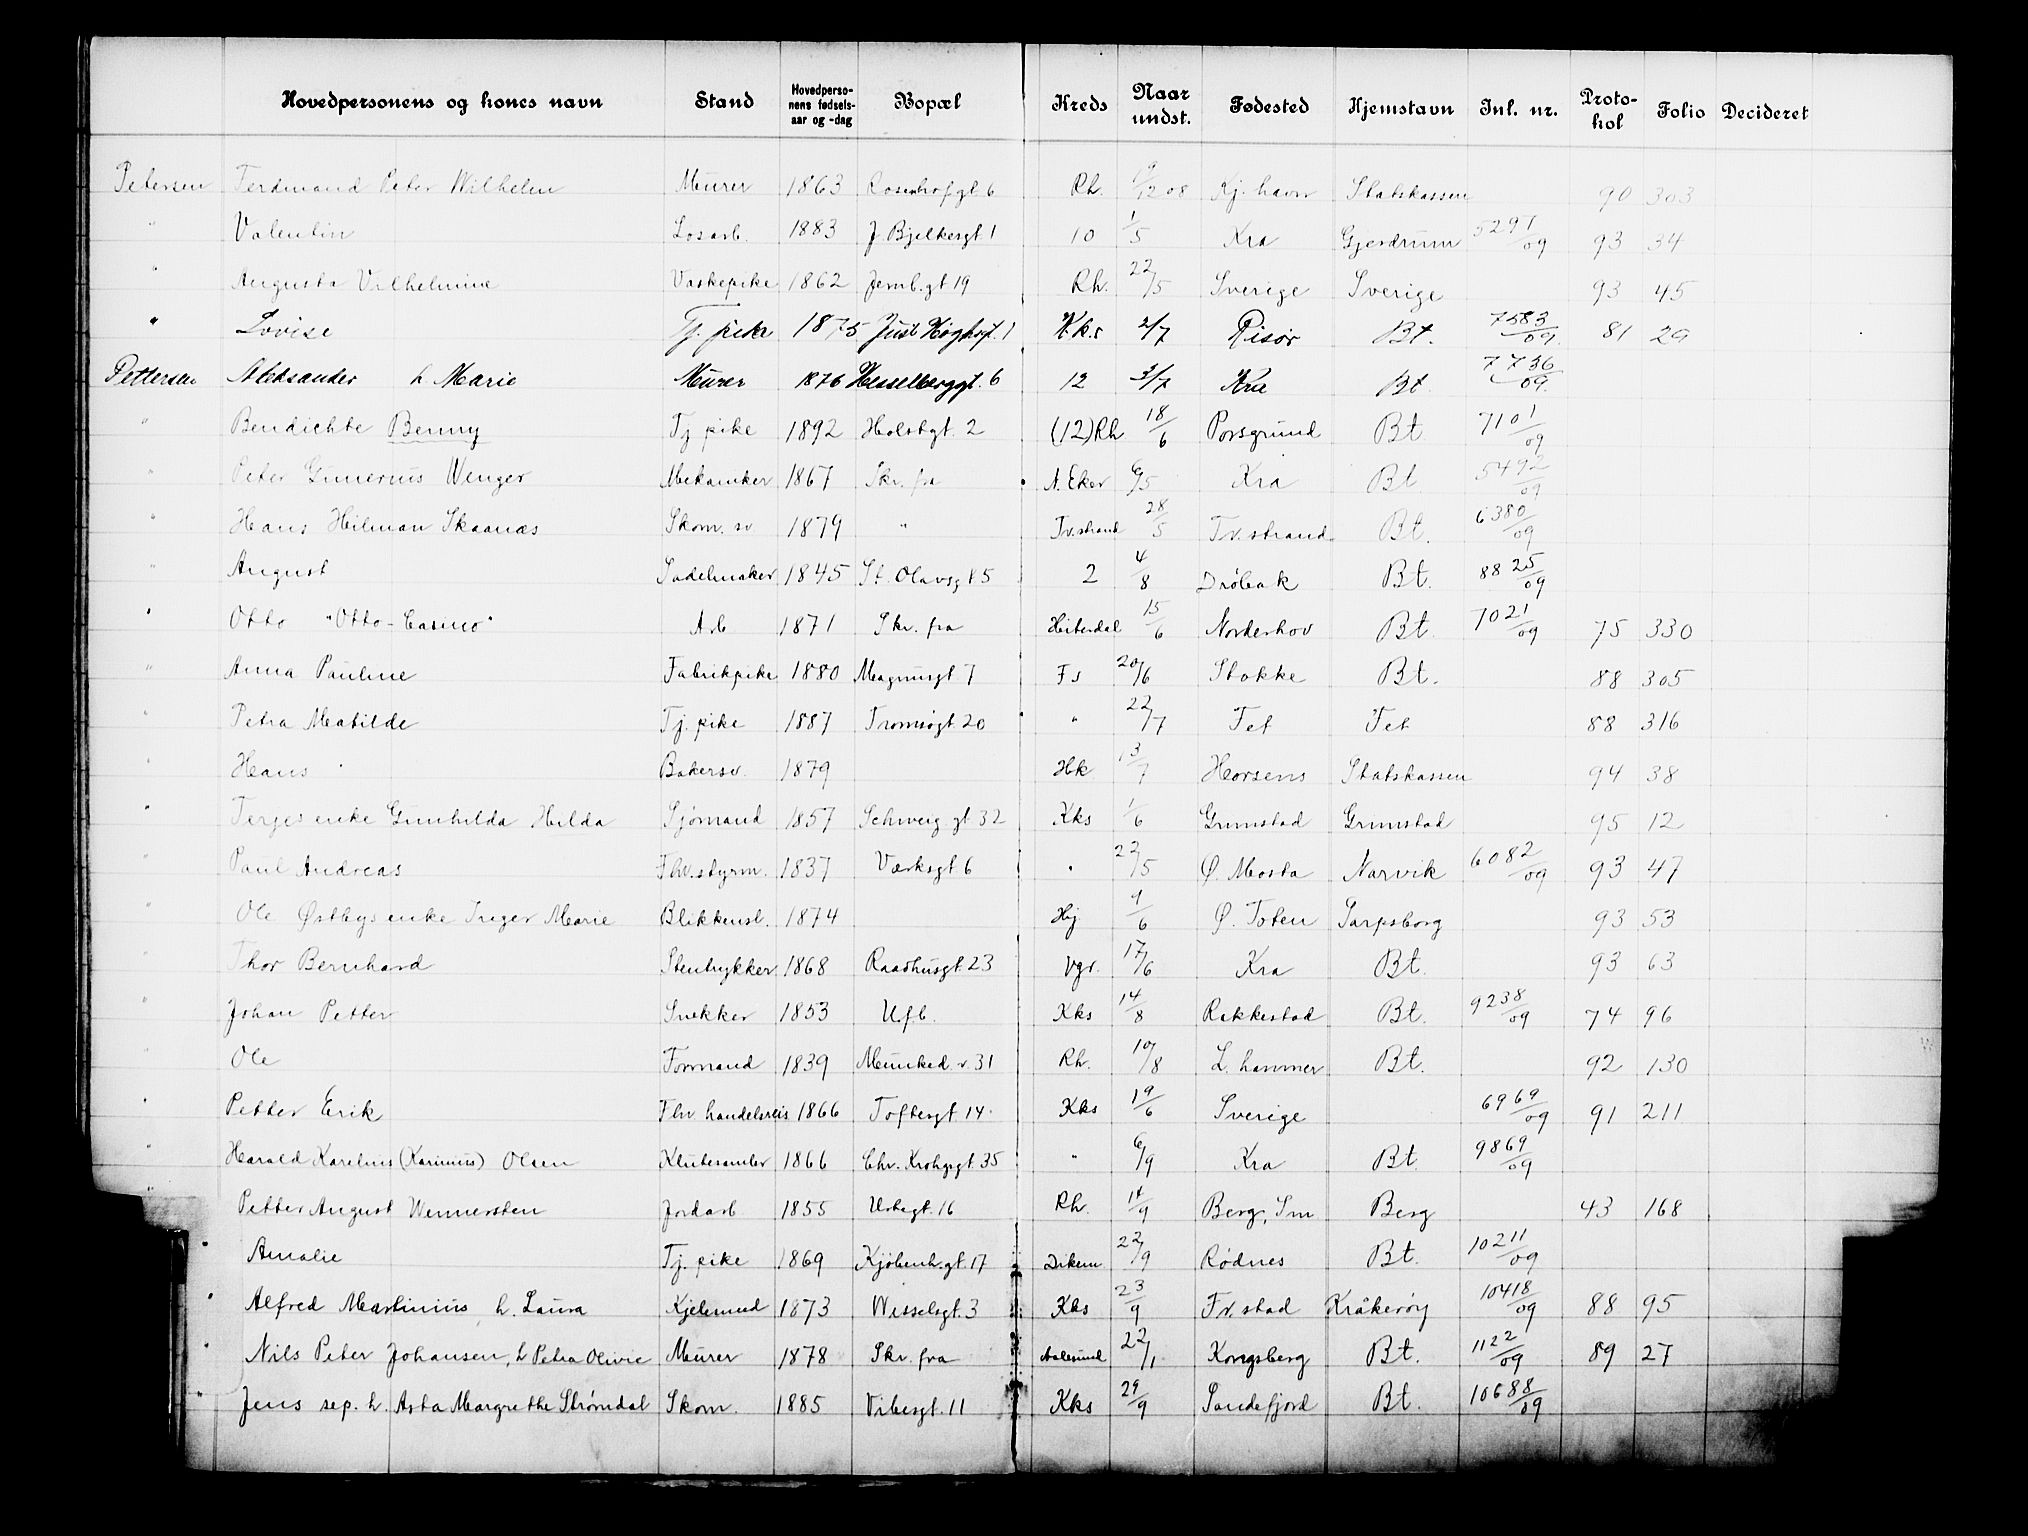 Hovedpersonens og kones navn Stand Hovedpersonens fødselsaar og -dag Bopæl Kreds Naar undst. Fødested Hjemstavn Inl. nr. Protokol Folio Decideret
Petersen Ferdinand Peter Wilhelm Murer 1863 Rosenhofgt. 6 Rh. 9/12 08 Kj. havn Statskassen 90 303
" Valentin Losarb. 1883 J. Bjelkesgt. 1 10 1/5 Kra Gjerdrum 5291/09 93 34
" Augusta Vilhelmine Vaskepike 1862 Jernb.gt 19 Rh. 22/5 Sverige Sverige 93 45
" Lovise Tj. pike 1875 Just Høghsgt. 1 Kks 2/7 Risør Bt. 7583/09. 81 29
Pettersen Aleksander h. Marie Murer 1876 Hesselberggt. 6 12 3/7 Kra Bt. 7736/09.
" Bendichte Benny Tj pike 1892 Holstgt. 2 (12) Rh 18/6 Porsgrund Bt. 7101/09
" Peter Gunerius Wenger Mekaniker 1867 Skr. fra N. Eker 6/5 Kra Bt. 5492/09
" Hans Hilman Skaanæs Skom. sv. 1879 " Tv.strand 28/5 Tv.strand Bt. 6380/09
" August Sadelmaker 1845 St. Olavsgt 5 2 4/8 Drøbak Bt. 8825/09
" Otto "Otto-Casino" Arb 1871 Skr. fra Hiterdal 15/6 Norderhov Bt. 7021/09 75 330
" Anna Pauline Fabrikpike 1880 Magnusgt. 7 Fs 20/6 Stokke Bt. 88 305
" Petra Matilde Tj. pike 1887 Tromsøgt. 20 " 22/7 Fet Fet 88 316
" Hans Bakersv. 1879 Hk. 13/7 Horsens Statskassen 94 38
" Terjes enke Gunhilda Hilda Sjømand 1857 Schweig.gt 32 Kks 1/6 Grimstad Grimstad 95 12
" Paul Andreas Fhv.styrm. 1837 Verksgt. 6 " 22/5 Ø. Mosta Narvik 6082/09 93 47
" Ole Østbys enke Inger Marie Blikkensl. 1874 Hj. 9/6 Ø. Toten Sarpsborg 93 53
" Thor Bernhard Stentrykker 1868 Raadhusgt. 23 Vgr. 17/6 Kra Bt. 93 63
" Johan Petter Snekker 1853 U.f.b. Kks 14/8 Rakkestad Bt. 9238/09 74 96
" Ole Formand 1839 Munked. v. 31 Rh. 10/8 L. hammer Bt. 92 130
" Petter Erik Fhv. handelsreis 1866 Toftesgt. 14 Kks 19/6 Sverige 6969/09 91 211
" Harald Karelius (Karinius) Olsen Klutesamler 1866 Chr. Krohgsgt. 35 " 6/9 Kra Bt. 9869/09
" Petter August Wennersten Jordarb. 1855 Urtegt. 16 Rh. 14/9 Berg, Sm Berg 43 168
" Amalie Tj. pike 1869 Kjøbenh.gt. 17 Dikem. 22/9 Rødnes Bt. 10211/09
" Alfred Martinius, h. Laura Kjelsmed 1873 Wesselsgt. 3 Kks 23/9 Fr. stad Kråkerøy 10418/09 88 95
" Nils Peter Johansen, h Petra Olivie Murer 1878 Skr. fra Aalesund 22/1 Kongsberg Bt. 1122/09 89 27
" Jens sep. h. Asta Margrethe Strømdal Skom. 1885 Vibesgt. 11 Kks 29/9 Sandefjord Bt. 10688/09